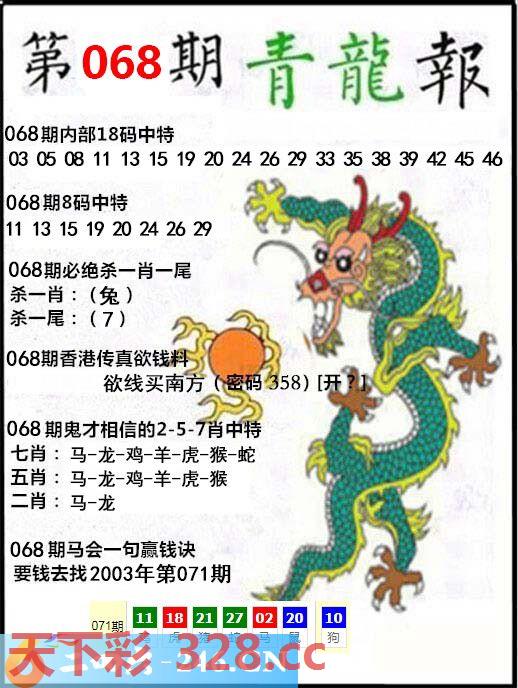 第068期青龍報
068期内部18码中特
03 05 08 11 13 15 19 20 24 26 29 33 35 38 39 42 45 46
068期8码中特
11 13 15 19 20 24 26 29
068期必绝杀一肖一尾
杀一肖：（兔）
杀一尾：（7）
068期香港传真欲钱料
欲线买南方（密码 358）[开？]
068期鬼才相信的2-5-7肖中特
七肖：马-龙-鸡-羊-虎-猴-蛇
五肖：马-龙-鸡-羊-虎-猴
二肖：马-龙
068期马会一句赢钱诀
要钱去找2003年第071期
071期 11 18 21 27 02 20 10
虎 猪 蛇 马 鼠 狗
天下彩-328.cc